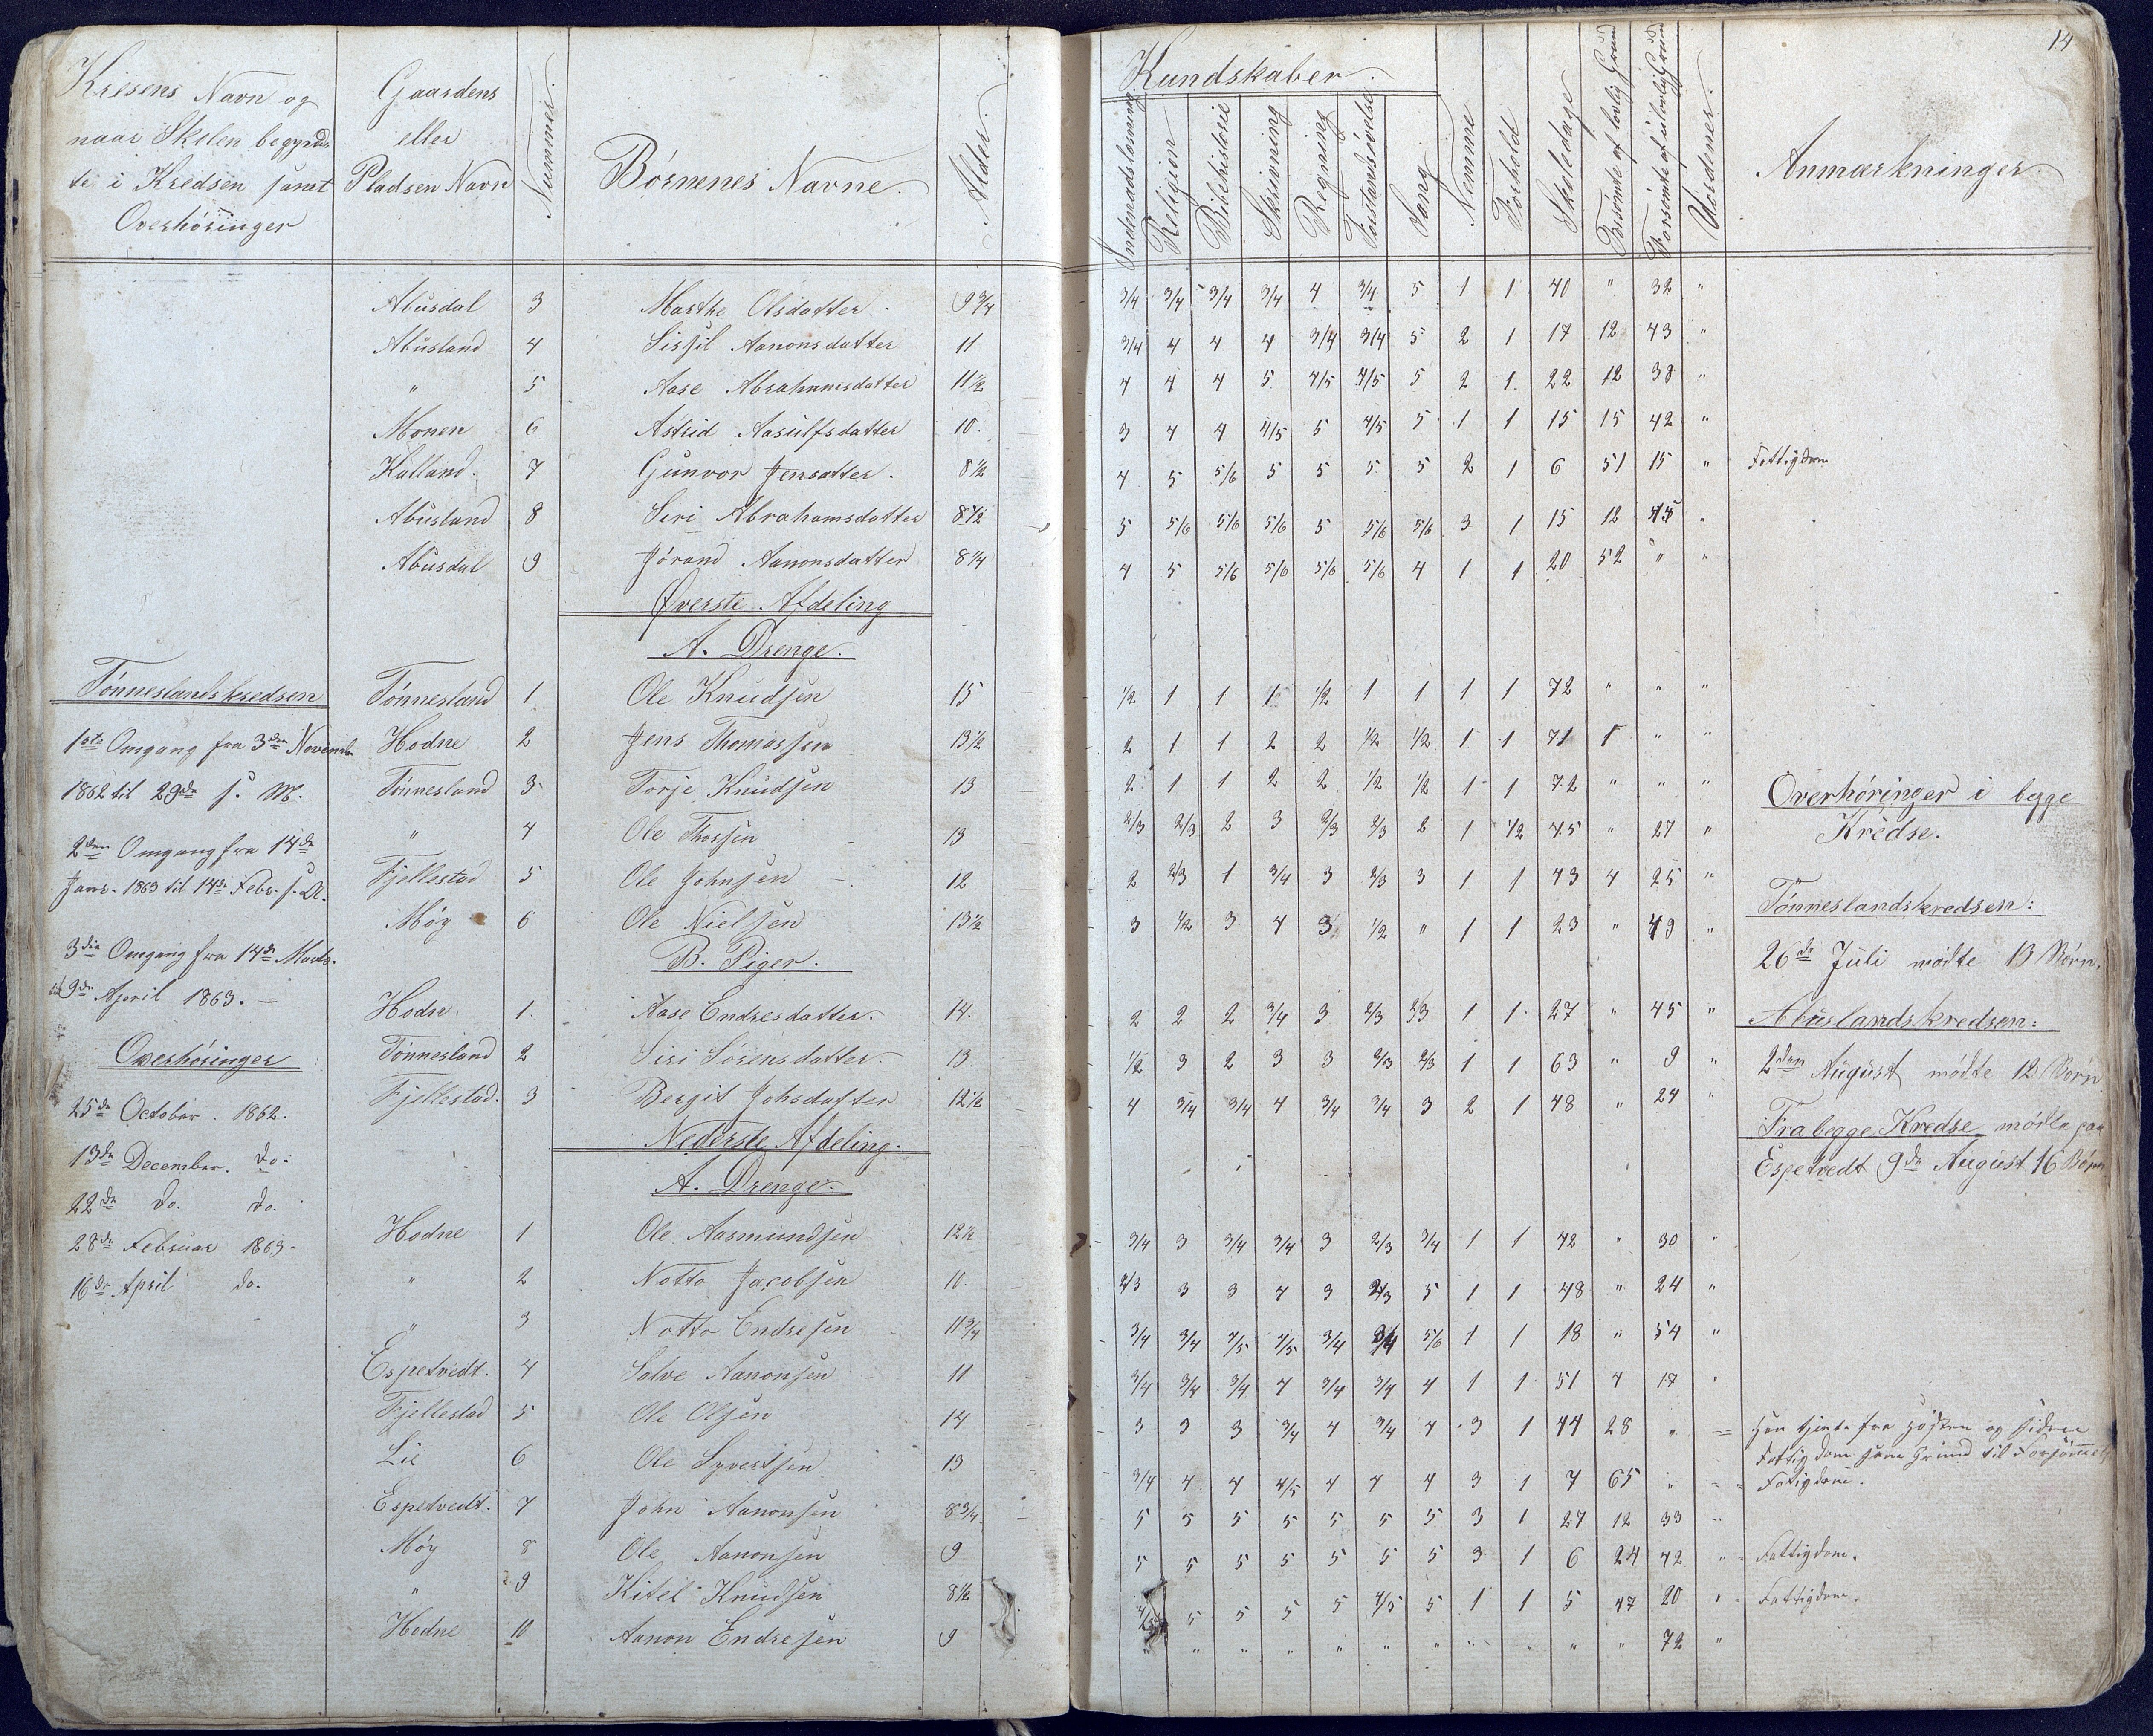 14
Kresens Navn og
naar Skolen begynd-
te i Kredsen samt
Overhøringer
Gaardens
eller
Pladsen Navn
Nummer.
Børnenes Navne.
Alder.
Kundskaber.
Indenadslæsning
Religion
Bibelhistorie
Skrivning
Regning
Forstandsøvelse
Sang
Nemme
Forhold
Skoledage
Forsømte af lovlig Grund
Forsømte af ulovlig Grund
Uordener.
Anmærkninger
Abusdal 3 Marthe Olsdatter 9 3/4 3/4 3/4 3/4 3/4 4 3/4 5 1 1 40 " 32 "
Abusland 4 Sissil Aanonsdatter 11 3/4 4 4 4 3/4 3/4 5 2 1 17 12 43 "
" 5 Aase Abrahamsdatter 11 1/2 4 4 4 5 4/5 4/5 5 2 1. 22 12 38 "
Monen 6 Astrid Aasulfsdatter 10. 3 4 4 4/5 5 4/5 5 1 1 15 15 42 "
Kalland. 7 Gunvor Jensatter. 8 1/2 4 5 5/6 5 5 5 5 2 1 6 51 15 " Fattigdom
Abusland 8 Siri Abrahamsdatter 8 1/2 5 5/6 5/6 5/6 5 5/6 5/6 3 1 15 12 45 "
Abusdal 9 Jórand Aanonsdatter 8 1/4 4 5 5/6 5/6 5/6 5/6 4 1 1 20 52 " "
Øverste Afdeling
A. Drenge.
Tønneslandskredsen Tønnesland 1. Ole Knudsen 15 1/2 1 1 1 1/2 1 1 1 1 72 " " "
1ste Omgang fra 3die Novemb. Hodne 2 Jens Thomassen 13 1/2 2 1 1 2 2 1/2 1/2 1 1 71 1 " "
1862 til 29de s. M. Tønnesland 3 Torje Knudsen 13 2 1 1 2 2 1/2 1/2 1 1 72 " " "
" 4 Ole Thorsen 13 2/3 2/3 2 3 2/3 2/3 2 1 1/2 45 " 27 "
2den Omgang fra 14de
Janr. 1863 til 14de Febr. s. A. Fjellestad 5 Ole Johnsen 12 2 2/3 1 3/4 3 2/3 3 1 1 43 4 25 "
Møy 6 Ole Nielsen 13 1/2 3 1/2 3 4 3 1/2 " 1 1 23 " 49 "
B. Piger.
3die Omgang fra 14de Marts.
til 9de April 1863. Hodn. 1. Aase Endresdatter. 14. 2 2 2 3/4 3 2/3 3/3 1 1 27 " 45 "
Overhøringer Tønnesland 2 Siri Sørensdatter 13 1/2 3 2 3 3 2/3 2/3 1 1 63 " 9 "
25de October. 1862. Fjellestad. 3 Bergit Johsdatter 12 1/2 4 3/4 3/4 4 3/4 3/4 3 2 1 48 " 24 "
Nederste Afdeling.
A. Drenge.
13de December. do.
22de do. do.
28de Februar 1863.
16de April do.
Hodne 1 Ole Aasmundsen 12 1/2 3/4 3 3/4 3/4 3 2/3 3/4 1 1 42 " 30 "
" 2 Notto Jacobsen 10. 2/3 3 3 4 3 2/3 5 1 1 48 " 24 "
" 3 Notto Endresen 11 3/4 3/4 3/4 4/5 4/5 3/4 3/4 5/6 1 1 18 " 54 "
Espetvedt. 4 Salve Aanonsen 11 3/4 3/4 3/4 4 3/4 3/4 4 1 1 51 4 17 "
Fjellestad 5 Ole Olsen 14 3 3 3 3/4 4 3/4 4 3 1 44 28 "
Lie 6 Ole Syvertsen 13 3/4 4 4 4/5 4 4 4 3 1 7 65 " Fatigdom.
Espetvedt. 7 John Aanonsen 8 3/4 5 5 5 5 5 5 5 3 1 27 12 33 "
Møy 8 Ole Aanonsen 9 5 5 5 5 5 5 5 3 1 6 24 42 " Fattigdom.
" 9 Kitel Knudsen 8 1/2 4/5 5 5 5 5 4/5 5 1 1 5 47 20 " Fattigdom.
Hodne 10 Aanon Endresen 9 " " " " " " " " " " 72 "
Overhøringer i begge
Kredse.
Tønneslandskredsen:
26de Juli mødte 13 Børn.
Abuslandskredsen:
2den August mødte 12 Børn.
Fra begge Kredse mødte paa
Espetvedt 9de August 16 Børn
Han tjente fra Høsten og siden
Fattigdom som Grund til Forsømmels